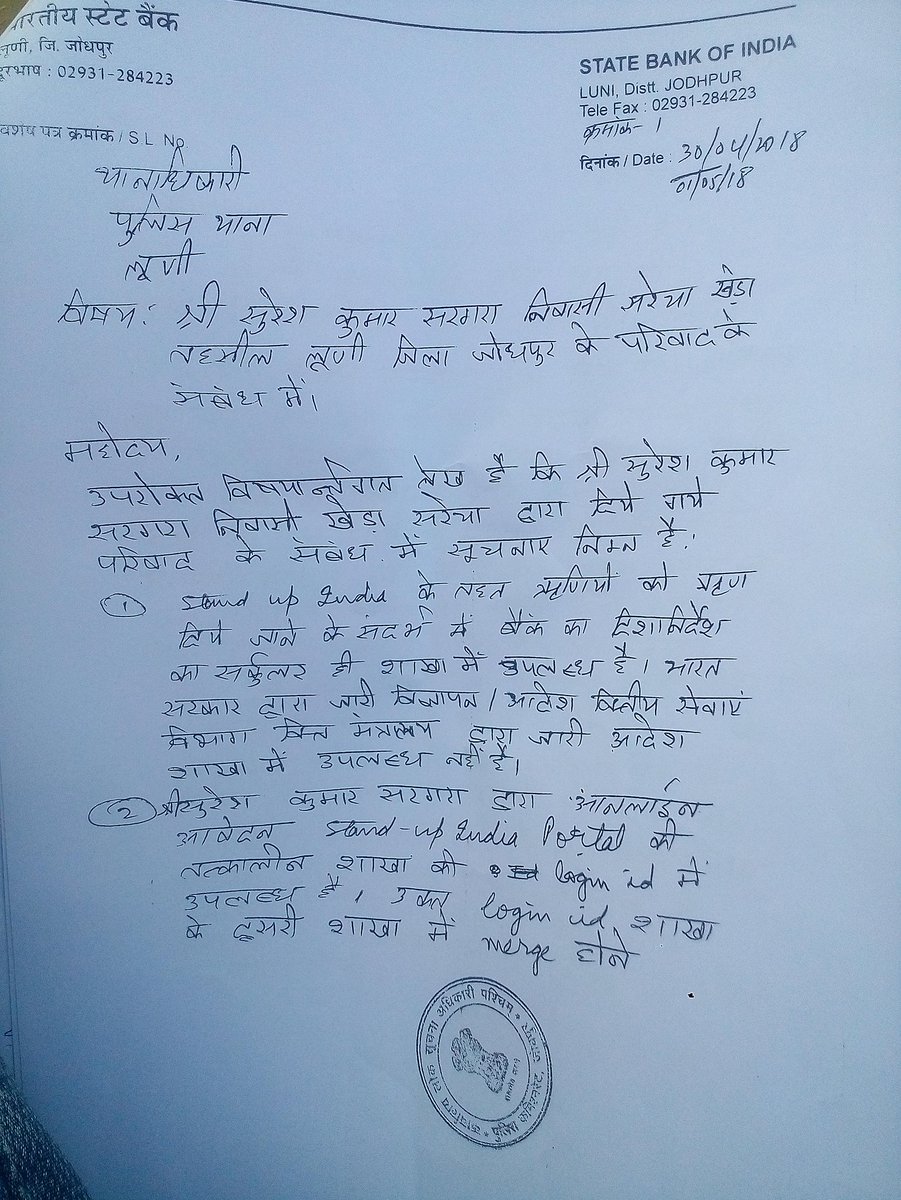 भारतीय स्टेट बैंक
लूणी, जि. जोधपुर
दूरभाष : 02931-284223
STATE BANK OF INDIA
LUNI, Distt. JODHPUR
Tele Fax : 02931-284223
क्रमांक- 1
विशेष पत्र क्रमांक / S L No.
दिनांक / Date : 30/04/2018
01/05/18
थानाधिकारी
पुलिस थाना
लूणी
विषय: श्री सुरेश कुमार सरगरा निवासी सरेचा खेड़ा
तहसील लूणी जिला जोधपुर के परिवाद के
संबंध में।
महोदय,
उपरोक्त विषयान्तर्गत लेख है कि श्री सुरेश कुमार
सरगरा निवासी खेड़ा सरेचा द्वारा दिये गये
परिवाद के संबंध में सूचनाए निम्न है:
① Stand up India के तहत ऋणियों को ऋण
दिये जाने के संदर्भ में बैंक का दिशानिर्देश
का सर्कुलर ही शाखा में उपलब्ध है। भारत
सरकार द्वारा जारी विज्ञापन / आदेश वित्तीय सेवाएं
विभाग वित्त मंत्रालय द्वारा जारी आदेश
शाखा में उपलब्ध नहीं है।
② श्री सुरेश कुमार सरगरा द्वारा ऑनलाईन
आवेदन Stand-up India Portal की
तत्कालीन शाखा की login id में
उपलब्ध है, उक्त login id शाखा
के दूसरी शाखा में merge होने
कार्यालय लोक सूचना अधिकारी पश्चिम
पुलिस कमिश्नरेट, जोधपुर